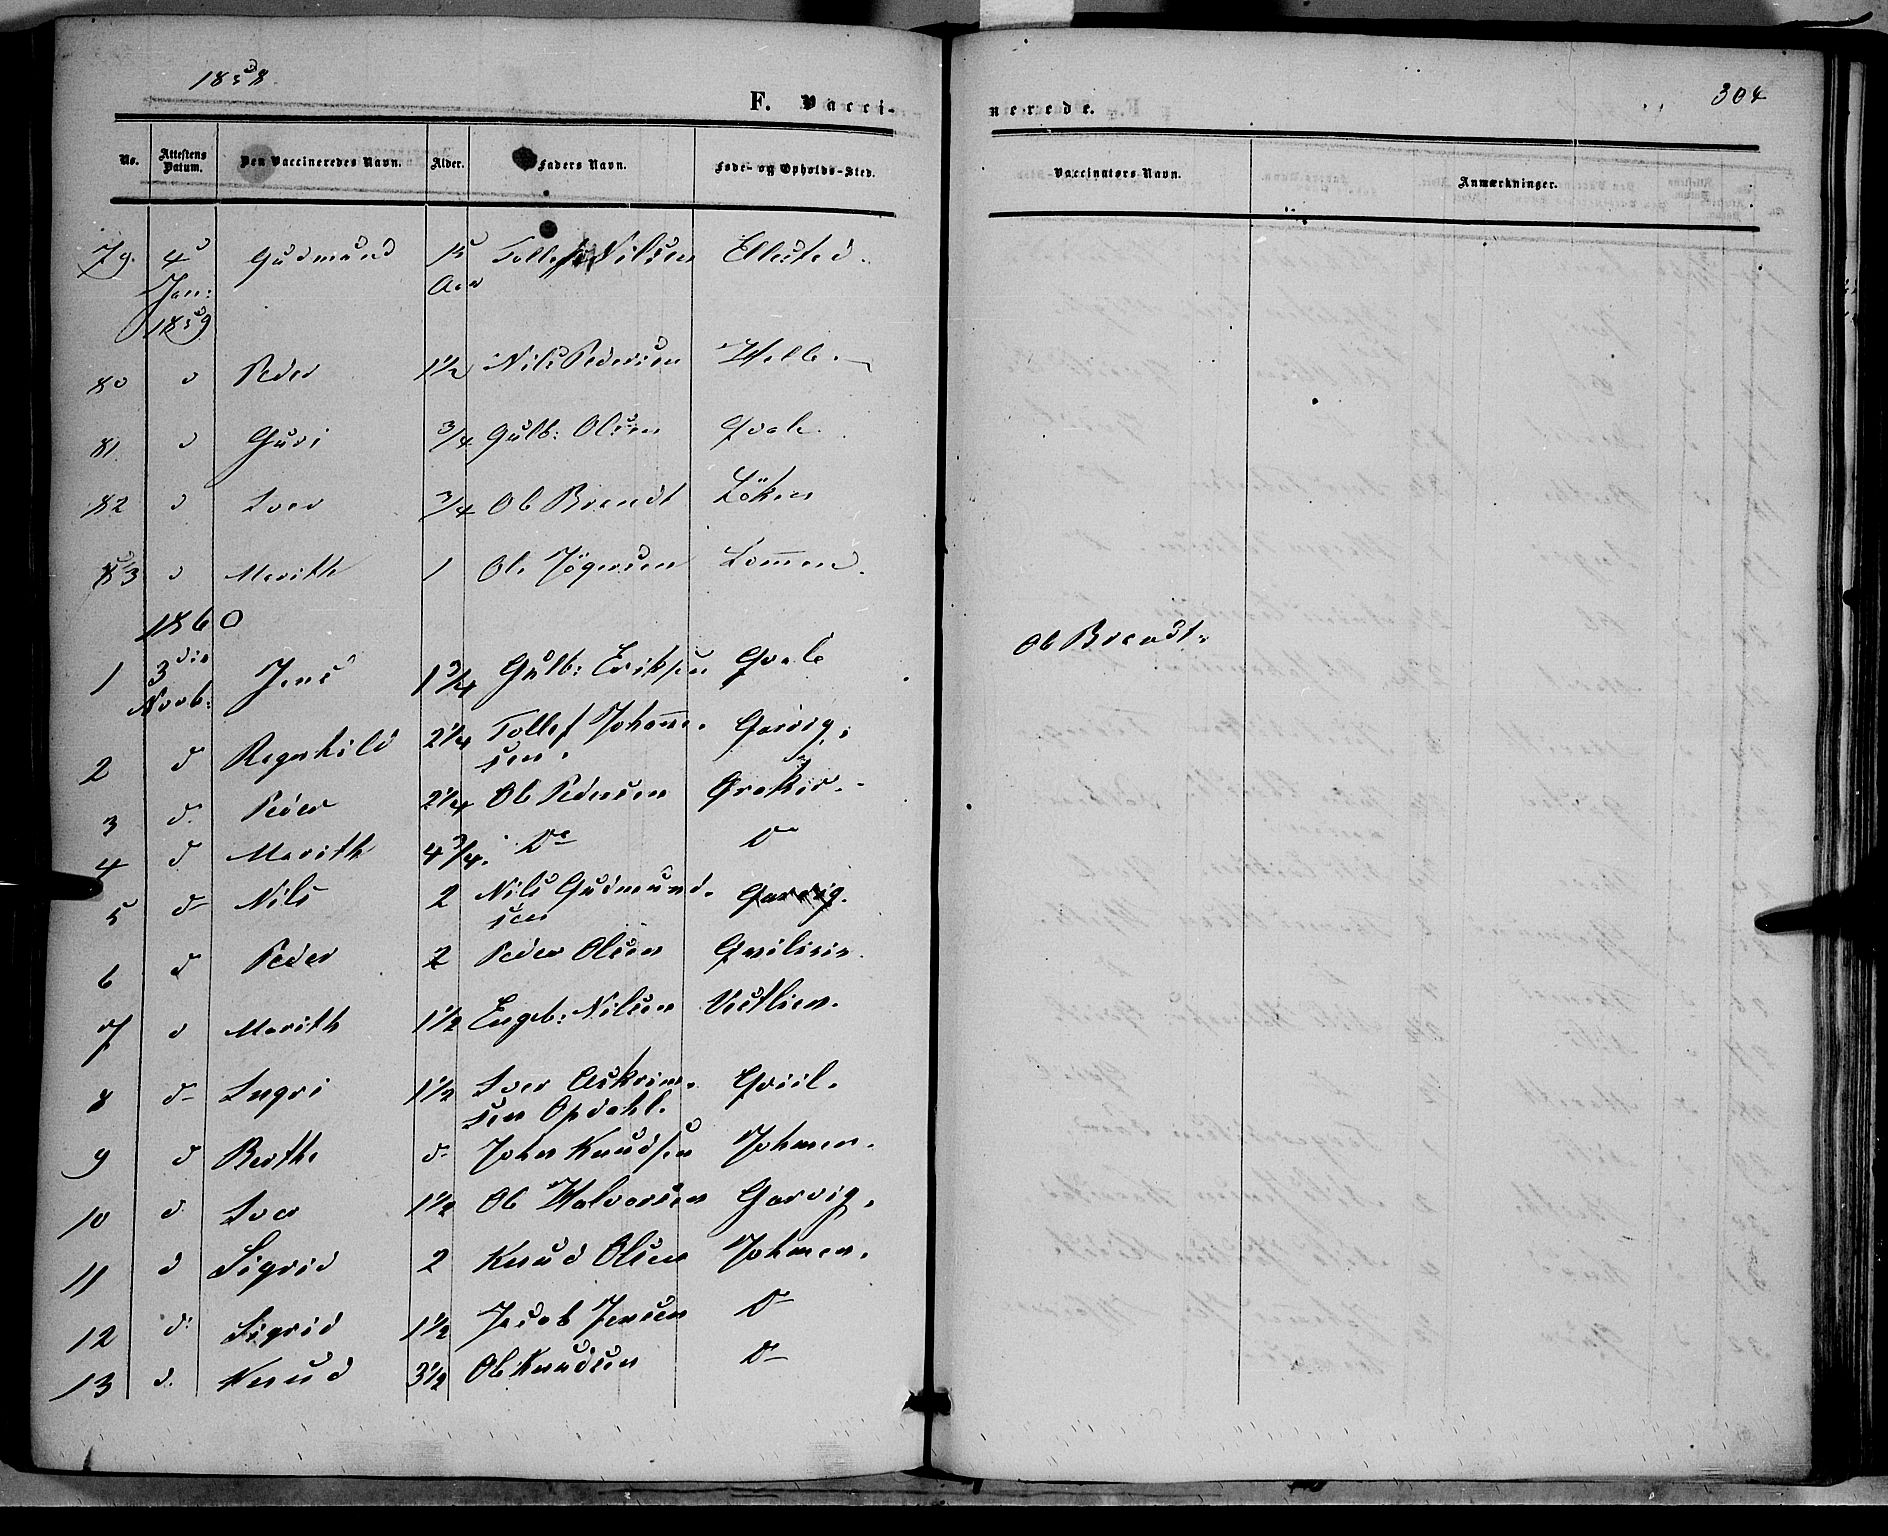 1858.
F. Vacci-
nerede.
304
No. Attestens Datum. Den Vaccineredes Navn. Alder. Faders Navn. Føde- og Opholds-Sted. Vaccinators Navn. Anmærkninger.
79. 4 Jan: 1859 Gudmund 15 Aar Tollef Nilsen Ellestad.
80 d Peder 1 1/2 Nils Pedersen
81. d Guri 3/4 Gulb: Olsen Qvale.
82 d Iver 3/4 Ole Brandt Löken
83 d Marith 1 Ole Jögersen Lom̄en.
1860
1 3die Novb: Jens 1 3/4 Gulb: Eriksen Qvale Ole Brandt.
2 d Ragnhild 2 1/4 Tollef Johan̄e-
sen. Garvig.
3 d. Peder 2 1/4 Ole Pedersen
4 d Marith 4 3/4. Do Do
5 d Nils 2 Nils Gudmund-
sen Garvig.
6 d Peder 2 Peder Olsen
7 d Marith 1 1/2 Engeb: Nilsen Vestlien.
8 d Ingri 1 1/2 Iver Askrim-
sen Opdahl.
9 d Berthe d John Knudsen
10 d Iver 1 1/2 Ole Halvorsen Garvig.
11 d Sigrid 2 Knud Olsen
12 d: Sigrid 1 1/2 Jacob Jensen Do
13 d. Knud 3 1/2 Ole Knudsen Do